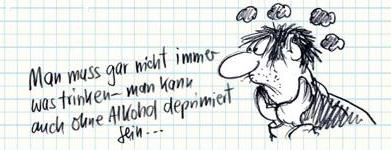 Man muss gar nicht immer
was trinken – man kann
auch ohne Alkohol deprimiert
sein...